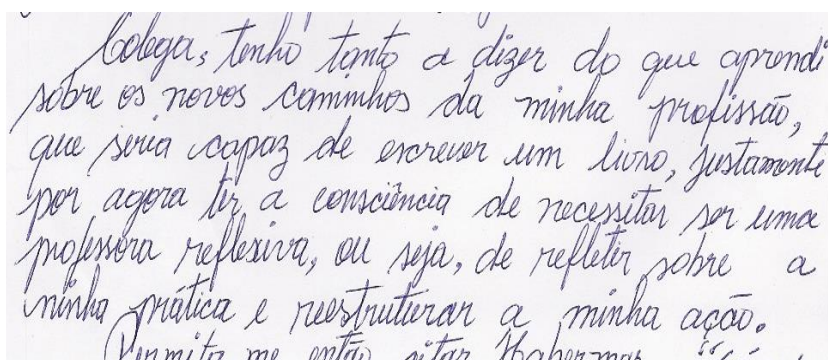 Colega, tenho tanto a dizer do que aprendi
sobre os novos caminhos da minha profissão,
que seria capaz de escrever um livro, justamente
por agora ter a consciência de necessitar ser uma
professora reflexiva, ou seja, de refletir sobre a
minha prática e reestruturar a minha ação.
Permita me então citar Habermas